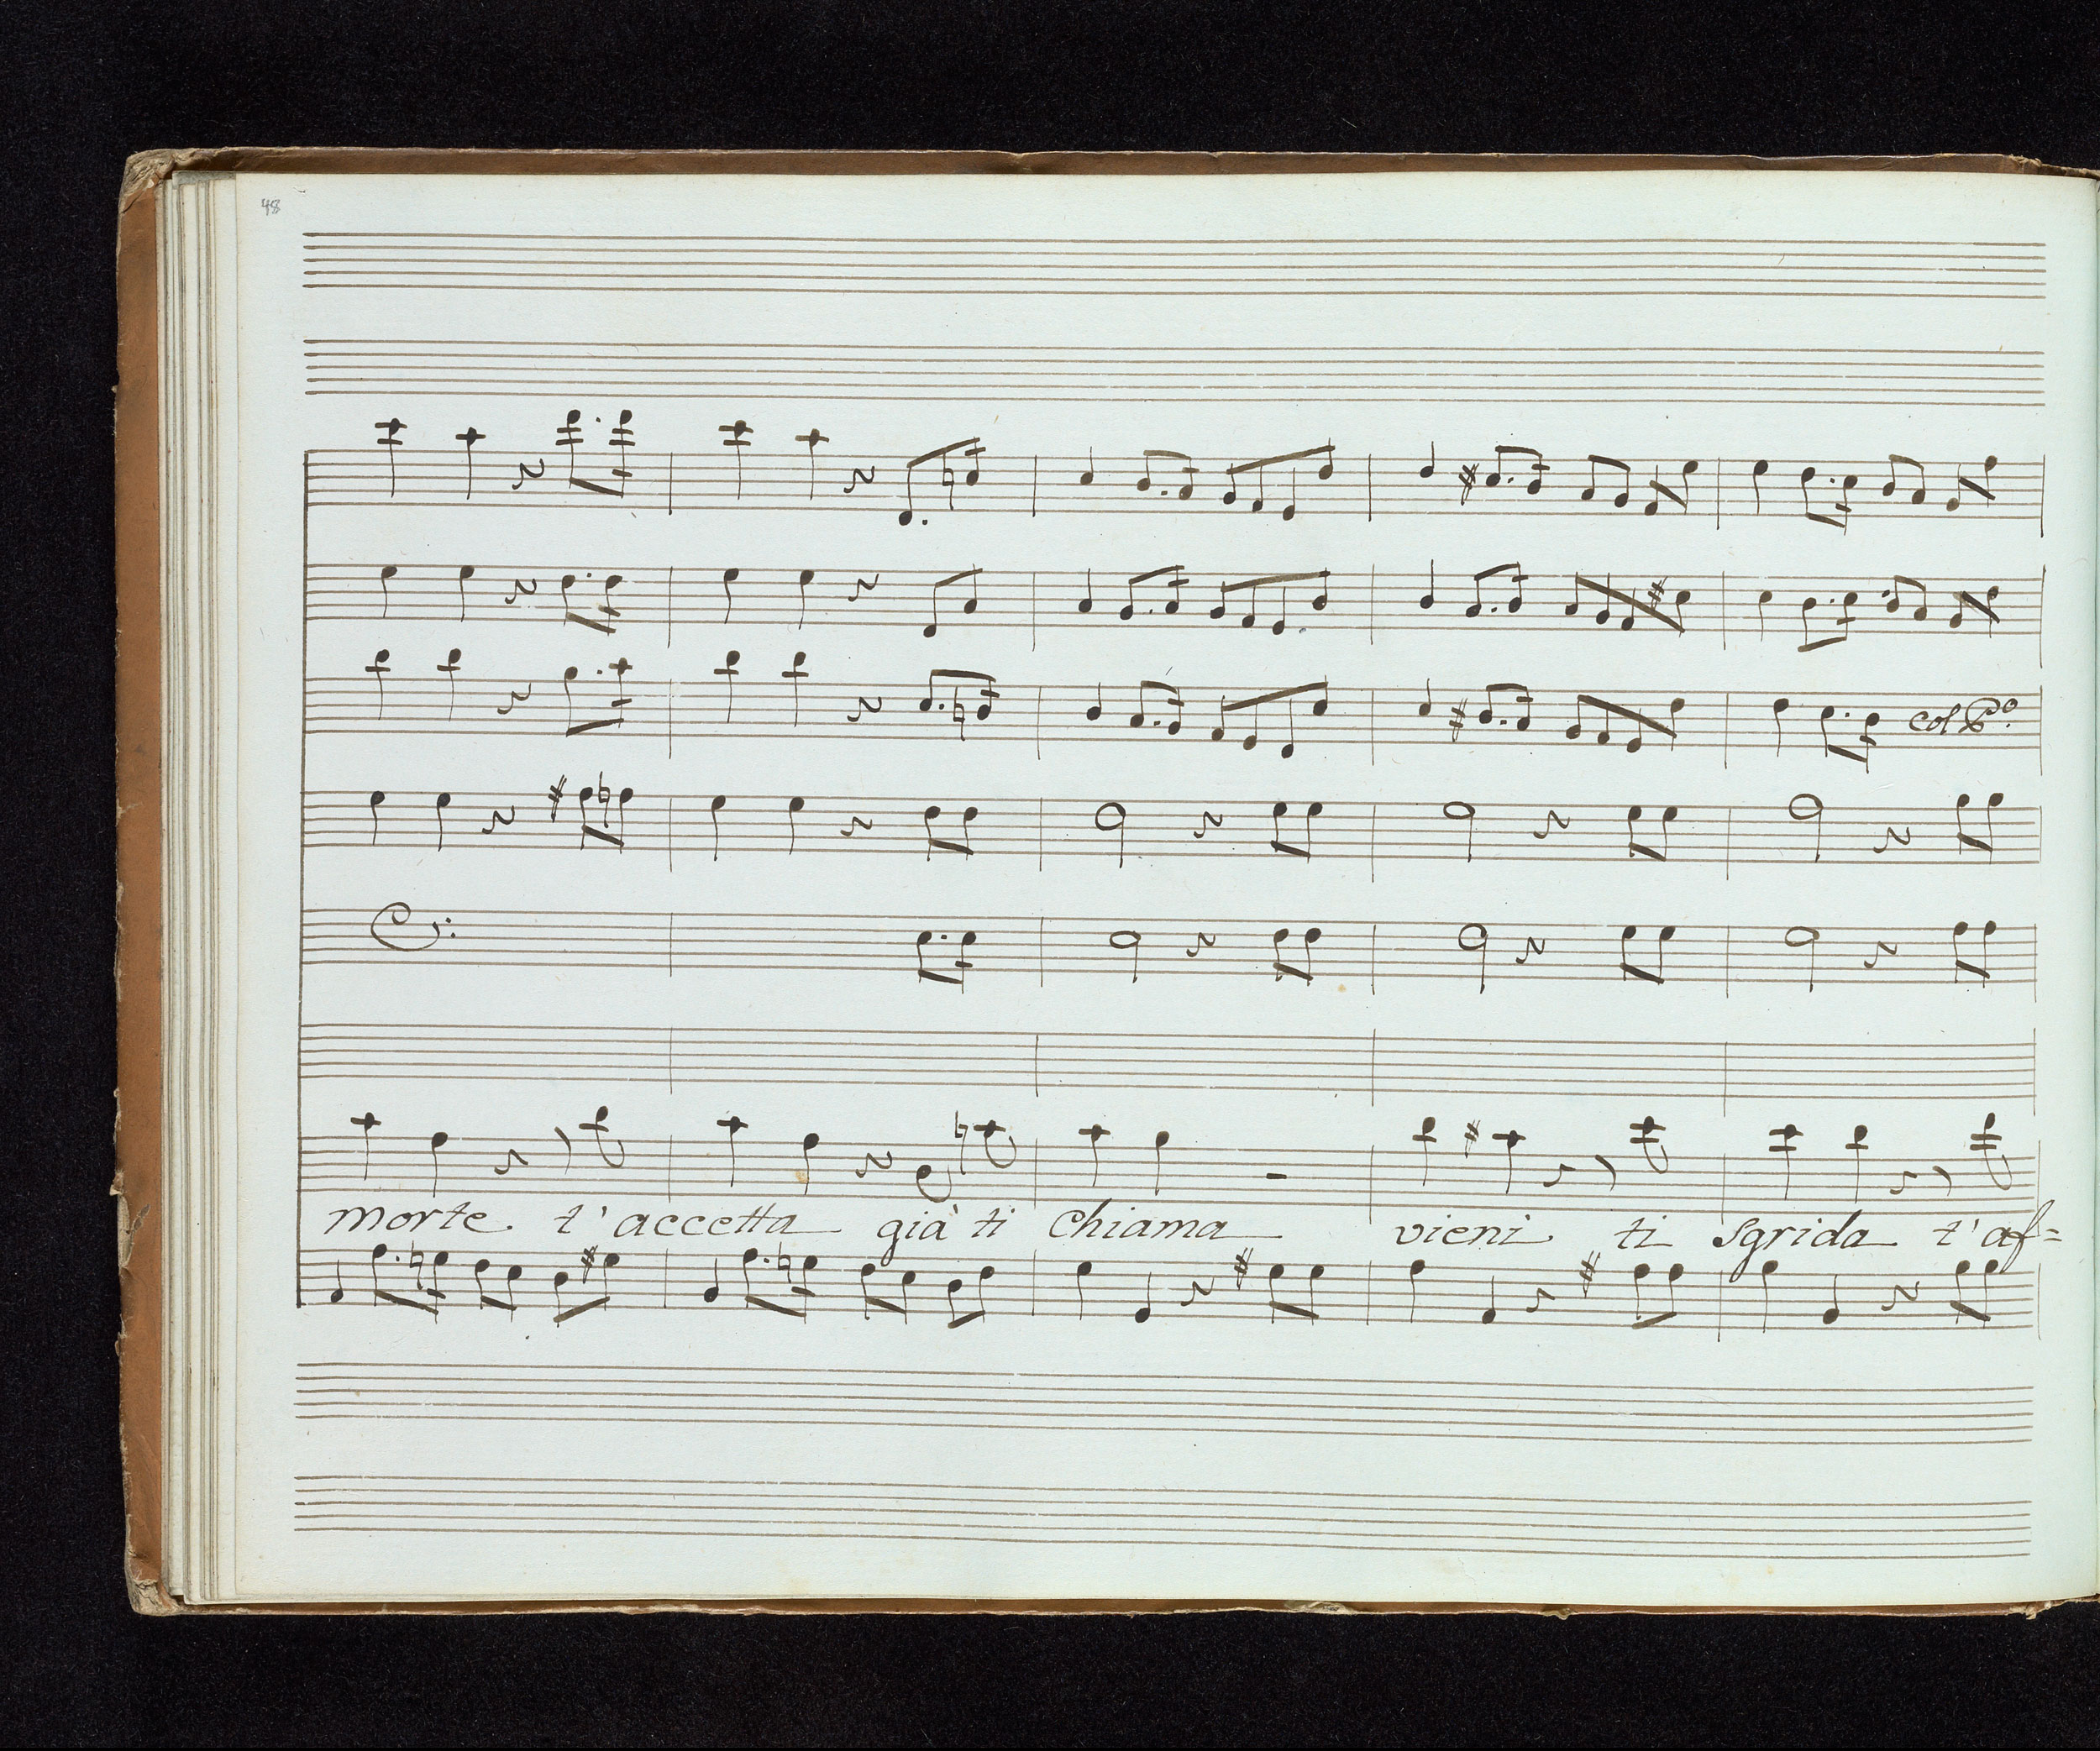 48
col Pº
morte t' accetta già ti chiama vieni ti sgrida t' af=